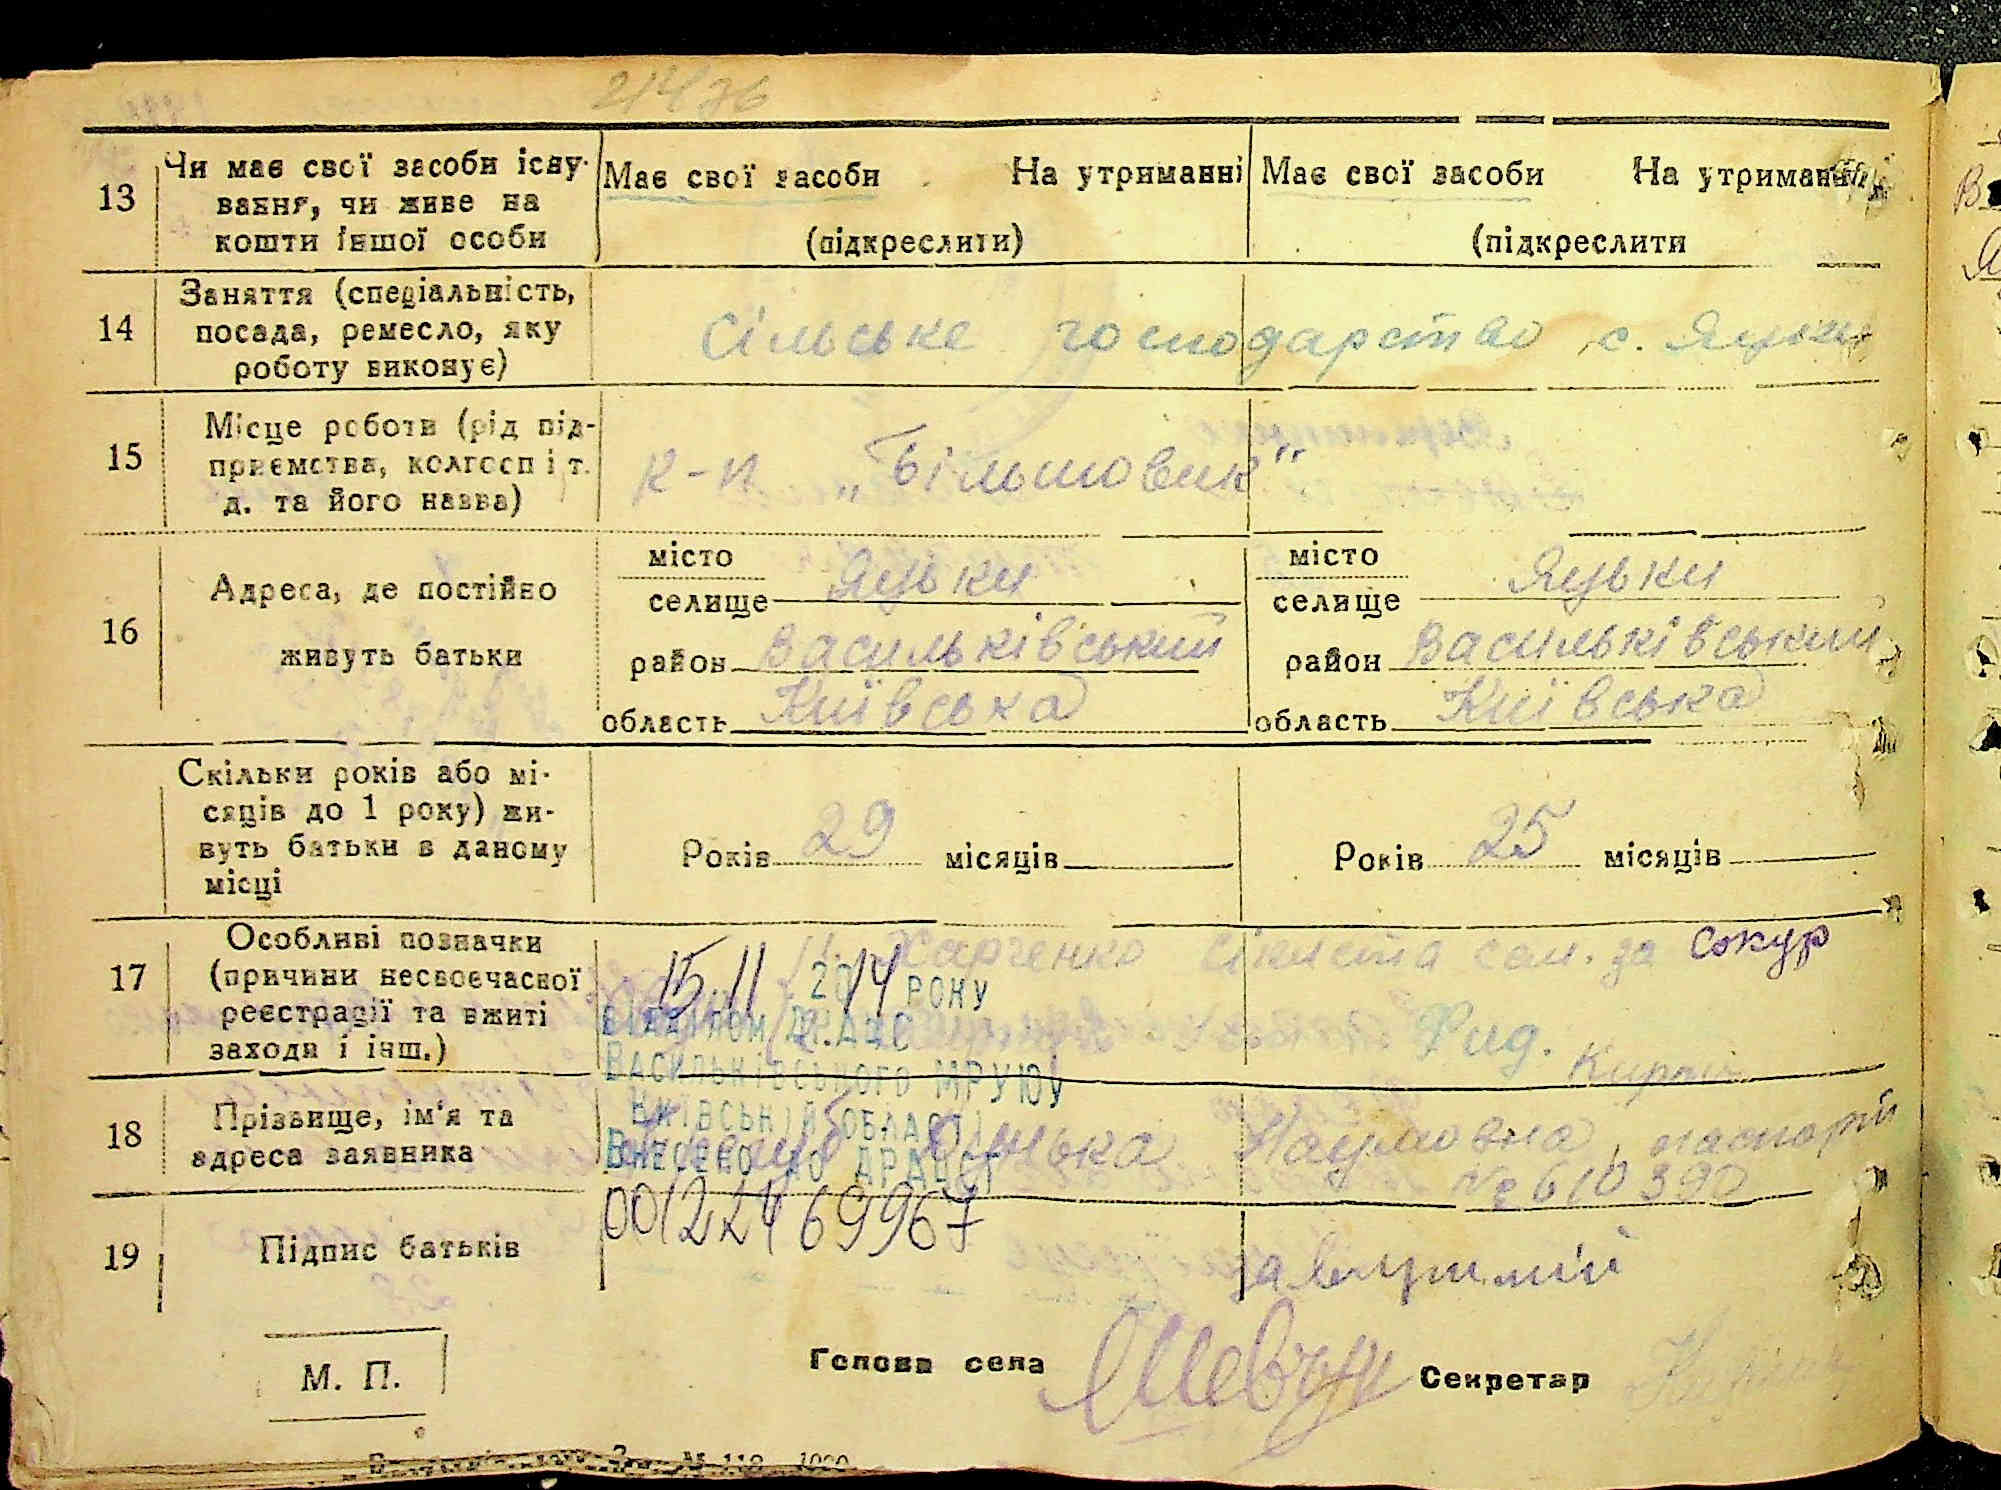 214/76
13 Чи має свої засоби існу-
вання, чи живе на
кошти іншої особи
Має свої засоби На утриманні
(підкреслити)
Має свої засоби На утриманні
(підкреслити
14 Заняття (спеціальність,
посада, ремесло, яку
роботу виконує)
Сільське господарство с. Яцьки
15 Місце роботи (рід під-
приємства, колгосп і т.
д. та його назва)
к-п „Більшовик"
16 Адреса, де постійно
живуть батьки
місто
селище Яцьки
район Васильківський
область Київська
місто
селище Яцьки
район Васильківський
область Київська
Скільки років або мі-
сяців до 1 року) жи-
вуть батьки в даному
місці
Років 29 місяців
Років 25 місяців
17 Особливі позначки
(причини несвоєчасної
реєстрації та вжиті
заходи і інш.)
Харченко сам. за Сокур
15.11 2014 РОКУ
ВІДДІЛОМ ДРАЦС
ВАСИЛЬКІВСЬКОГО МРУЮ
КИЇВСЬКІЙ ОБЛАСТІ
ВНЕСЕНО ДО ДРАЦСГ
00122469967
18 Прізвище, ім'я та
адреса заявника
Наумовна, паспорт
№ 610390
19 Підпис батьків
М. П.
Голова села Шевчук Секретар